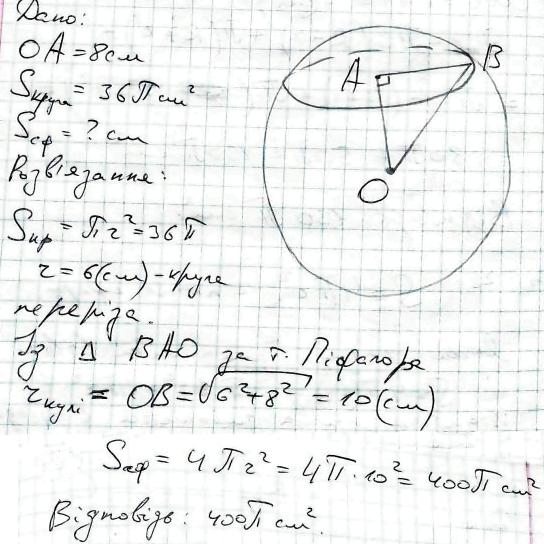 Дано:
OA = 8 см
Sкруга = 36П см²
Sсф = ? см
Розв'язання:
Sкр = Пr² = 36П
r = 6(см) - круга
переріза.
Із Δ BAO за т. Піфагора
rкулі = OB = √6²+8² = 10(см)
Sсф = 4Пr² = 4П·10² = 400П см²
Відповідь: 400П см².
A
B
O